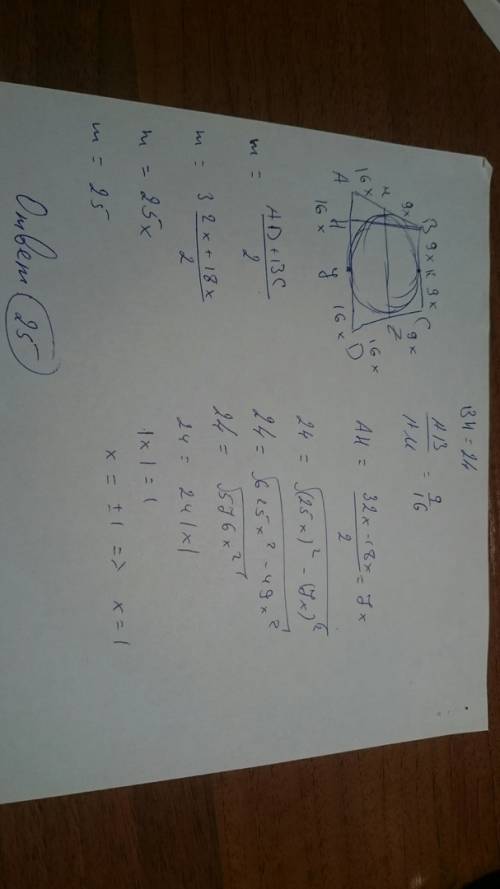 BH = 24
B 9x K 9x C
9x 9x
M Z
16x 16x
A 16x H y 16x D
AH = \frac{32x - 18x}{2} = 7x
24 = \sqrt{(25x)^2 - (7x)^2}
24 = \sqrt{625x^2 - 49x^2}
24 = \sqrt{576x^2}
24 = 24|x|
|x| = 1
x = ±1 => x = 1
m = \frac{AD + BC}{2}
m = \frac{32x + 18x}{2}
m = 25x
m = 25
Ответ 25